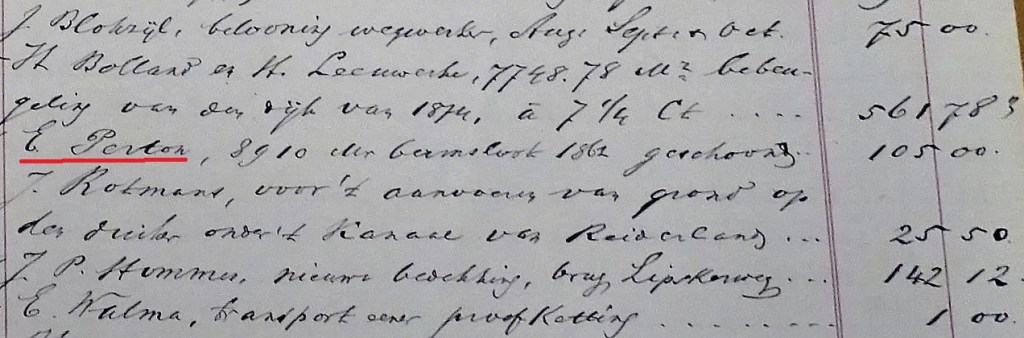 J. Blokzijl, belooning wegwerker, Aug: Sept: & Oct. 75 00.
H. Bolland en H. Leeuwerke, 7748.78 M² bebeu-
geling van den dijk van 1874, à 7 1/4 Ct .... 561 78⁵
E. Perton, 8910 Mr bermsloot 1862 geschoond.. 105 00.
J. Rotmans, voor 't aanvoeren van grond op
den duiker onder 't Kanaal van Reiderland, ... 25 50.
J. P. Hommes, nieuwe bedekking, brug Lipskerweg ... 142 12.
E. Walma, transport eener proefketting ......... 1 00.